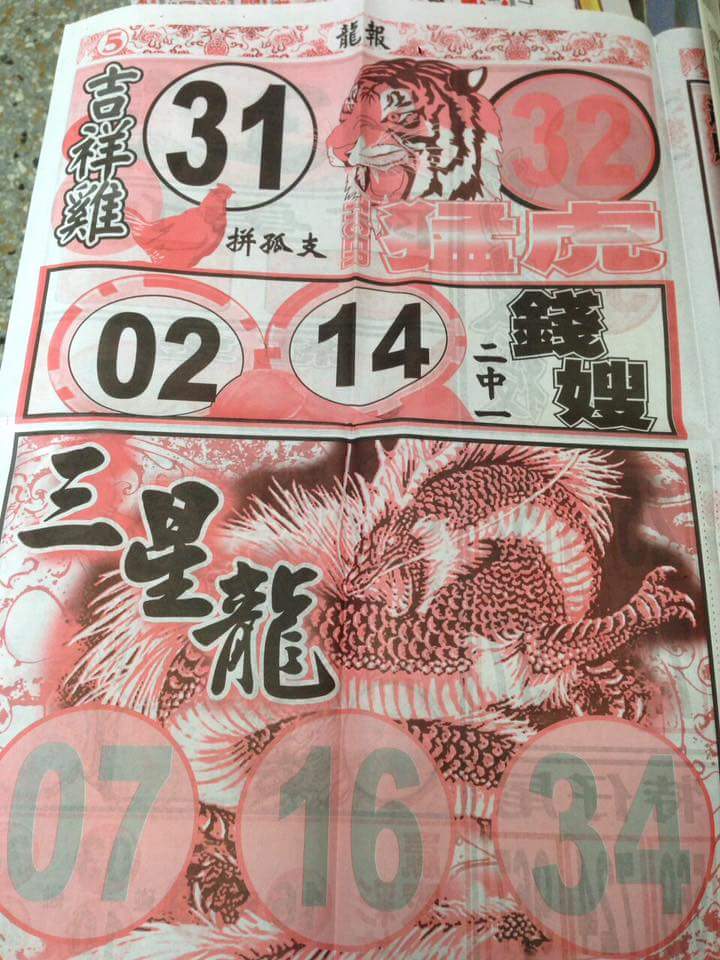 5
龍報
吉祥雞
31
拼孤支
32
猛虎
02
14
二中一
錢嫂
三星龍
07
16
34